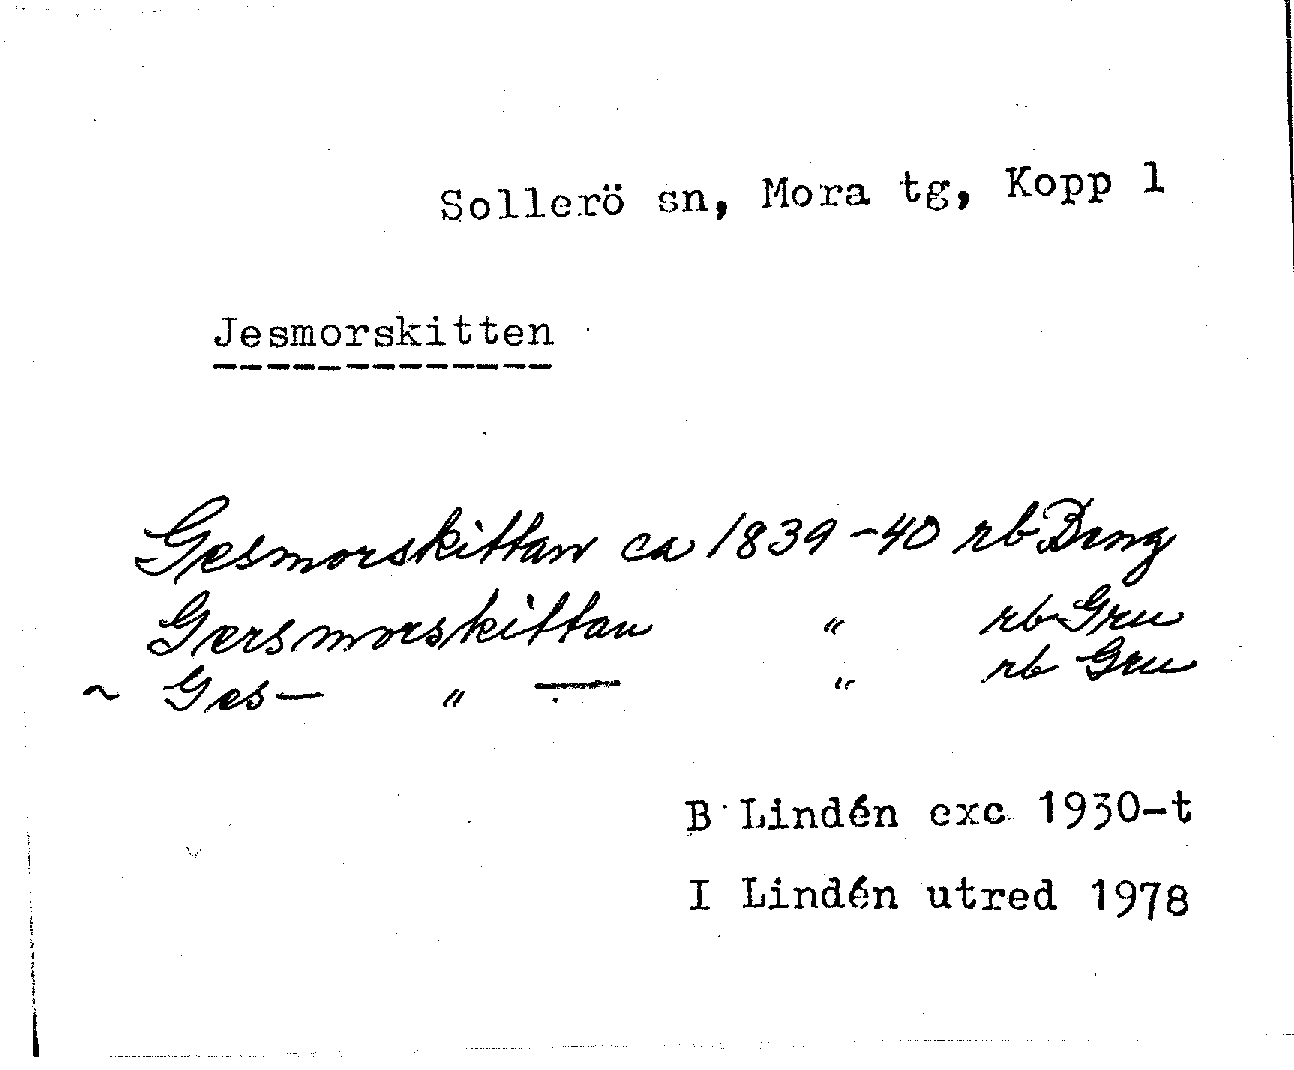 Sollerö sn, Mora tg, Kopp 1
Jesmorskitten
Gesmorskittan ca 1839-40 rb Beng
Gersmorskittan " rb Gru
~ Ges- " — " rb Gru
B Lindén exc 1930-t
I Lindén utred 1978